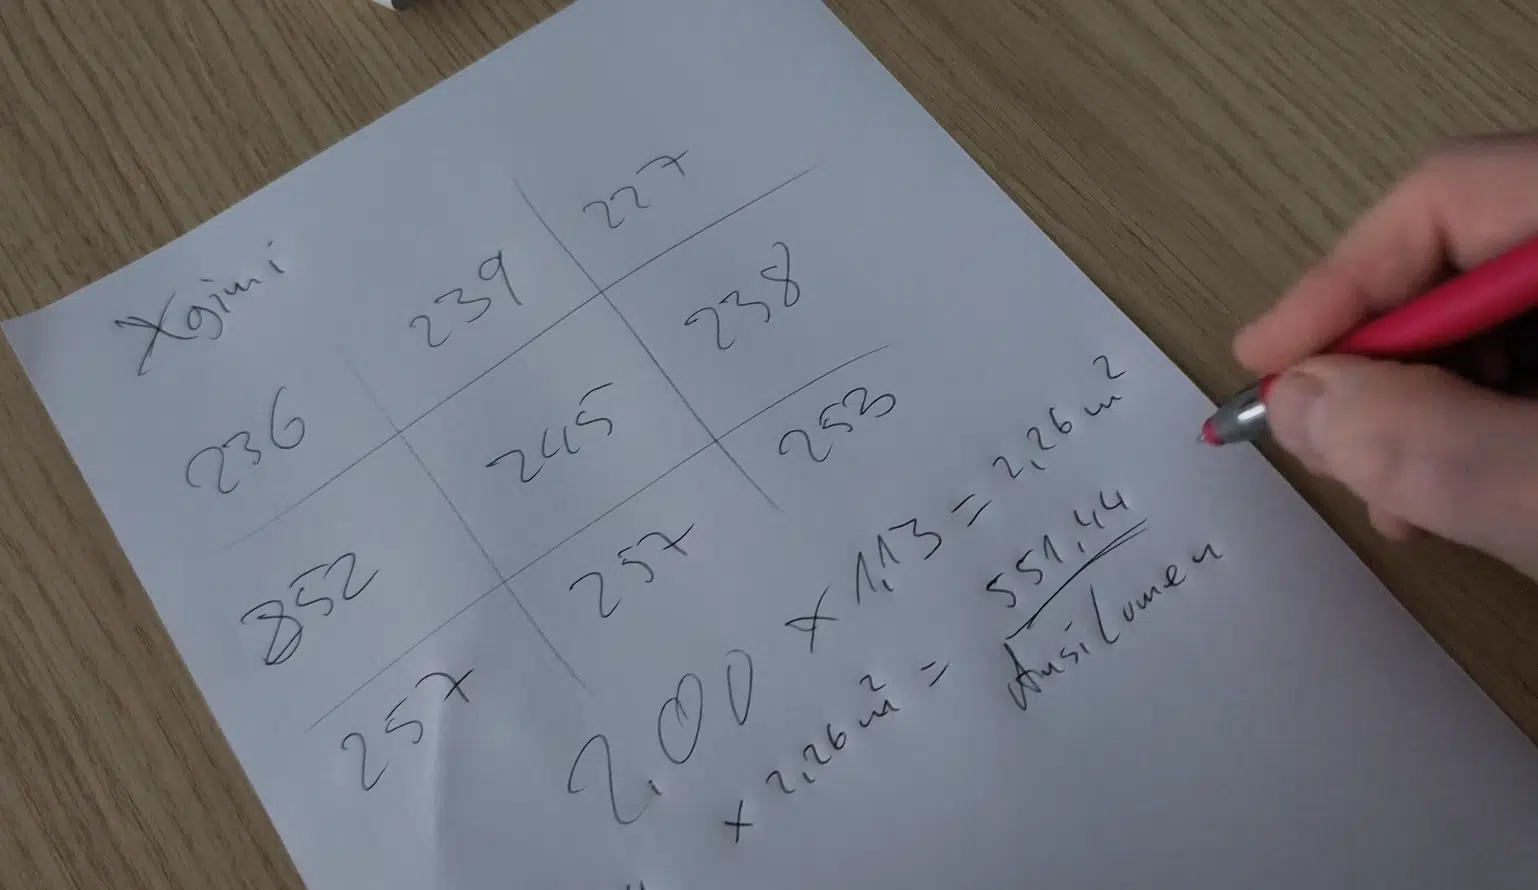 Xgimi
236 239 227
852 245 238
257 257 253
2,00 x 1,13 = 2,26 m²
x 2,26 m² = 551,44
Ansilumen